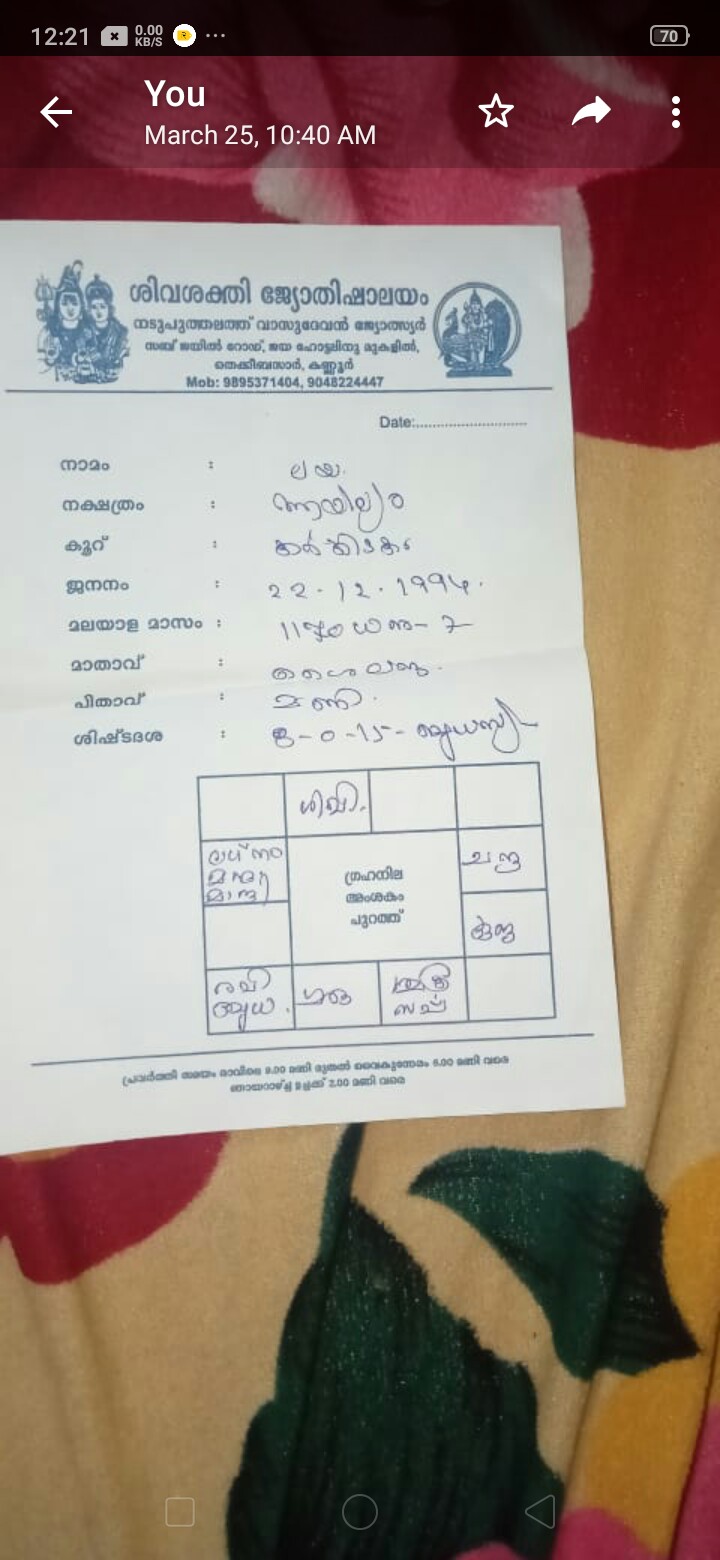 12:21 0.00 KB/S ... 70
You
March 25, 10:40 AM
ശിവശക്തി ജ്യോതിഷാലയം
നടുപുത്തലത്ത് വാസുദേവൻ ജ്യോത്സ്യർ
സബ് ജയിൽ റോഡ്, ജയ ഹോട്ടലിനു മുകളിൽ,
തെക്കീബസാർ, കണ്ണൂർ
Mob: 9895371404, 9048224447
Date:
നാമം : ലയ.
നക്ഷത്രം : ആയില്യം
കൂറ് : കർക്കിടകം
ജനനം : 22.12.1994.
മലയാള മാസം : 1170 ധനു-7
മാതാവ് : ശൈലജ.
പിതാവ് : മണി.
ശിഷ്ടദശ : 8-0-15- ബുധ
ശിഖി.
ലഗ്നം
മന്ദ
മാന്ദി
ചന്ദ്ര
ഗ്രഹനില
അംശകം
പുറത്ത്
കുജ
രവി
ബുധ.
ഗുരു
ശുക്ര
സർപ്പ
പ്രവർത്തി സമയം രാവിലെ 9.00 മണി മുതൽ വൈകുന്നേരം 5.00 മണി വരെ
ഞായറാഴ്ച്ച ഉച്ചക്ക് 2.00 മണി വരെ